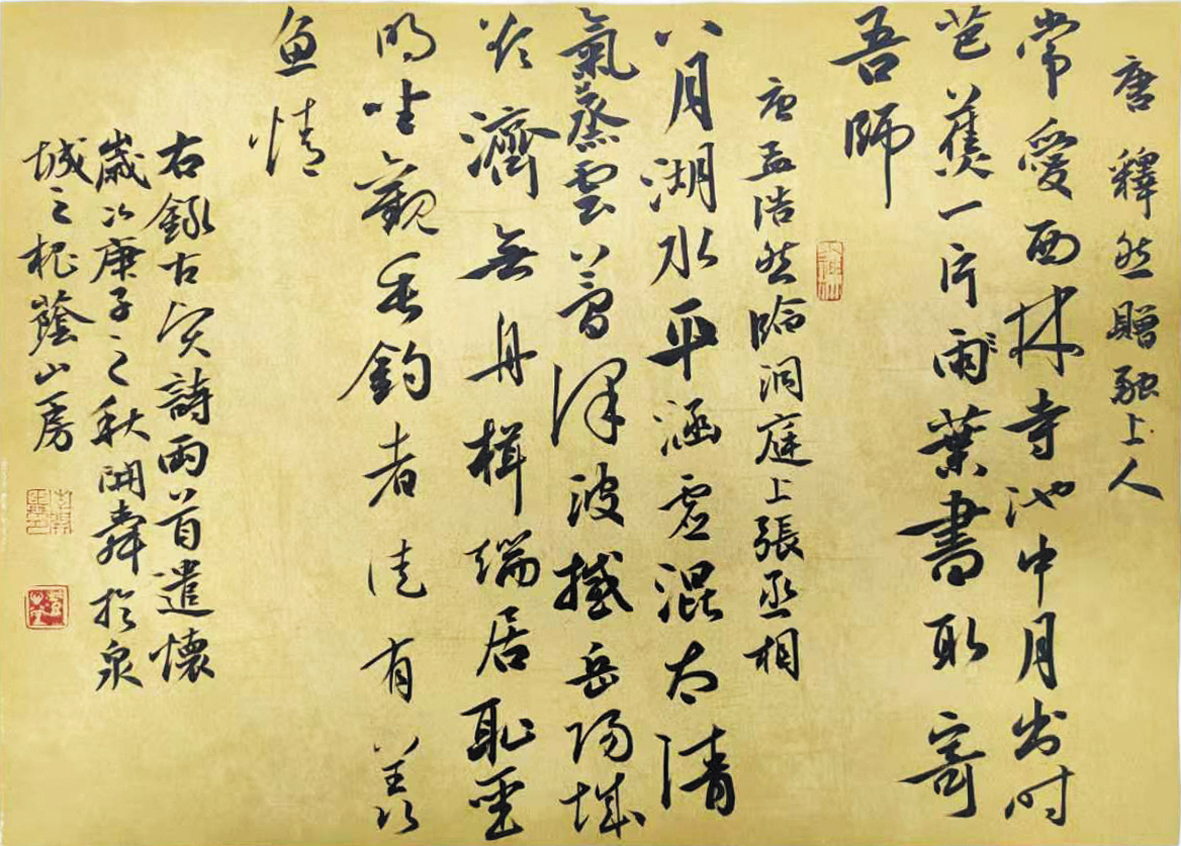 唐釋然贈融上人
常愛西林寺池中月出时
芭蕉一片雨葉書取寄
吾師
唐孟浩然臨洞庭上張丞相
八月湖水平涵虛混太清
氣蒸雲夢澤波撼岳陽城
欲濟無舟楫端居恥聖
明坐觀垂釣者徒有羨
魚情
右錄古賢詩兩首遣懷
歲次庚子之秋開舜於泉
城之槐蔭山房